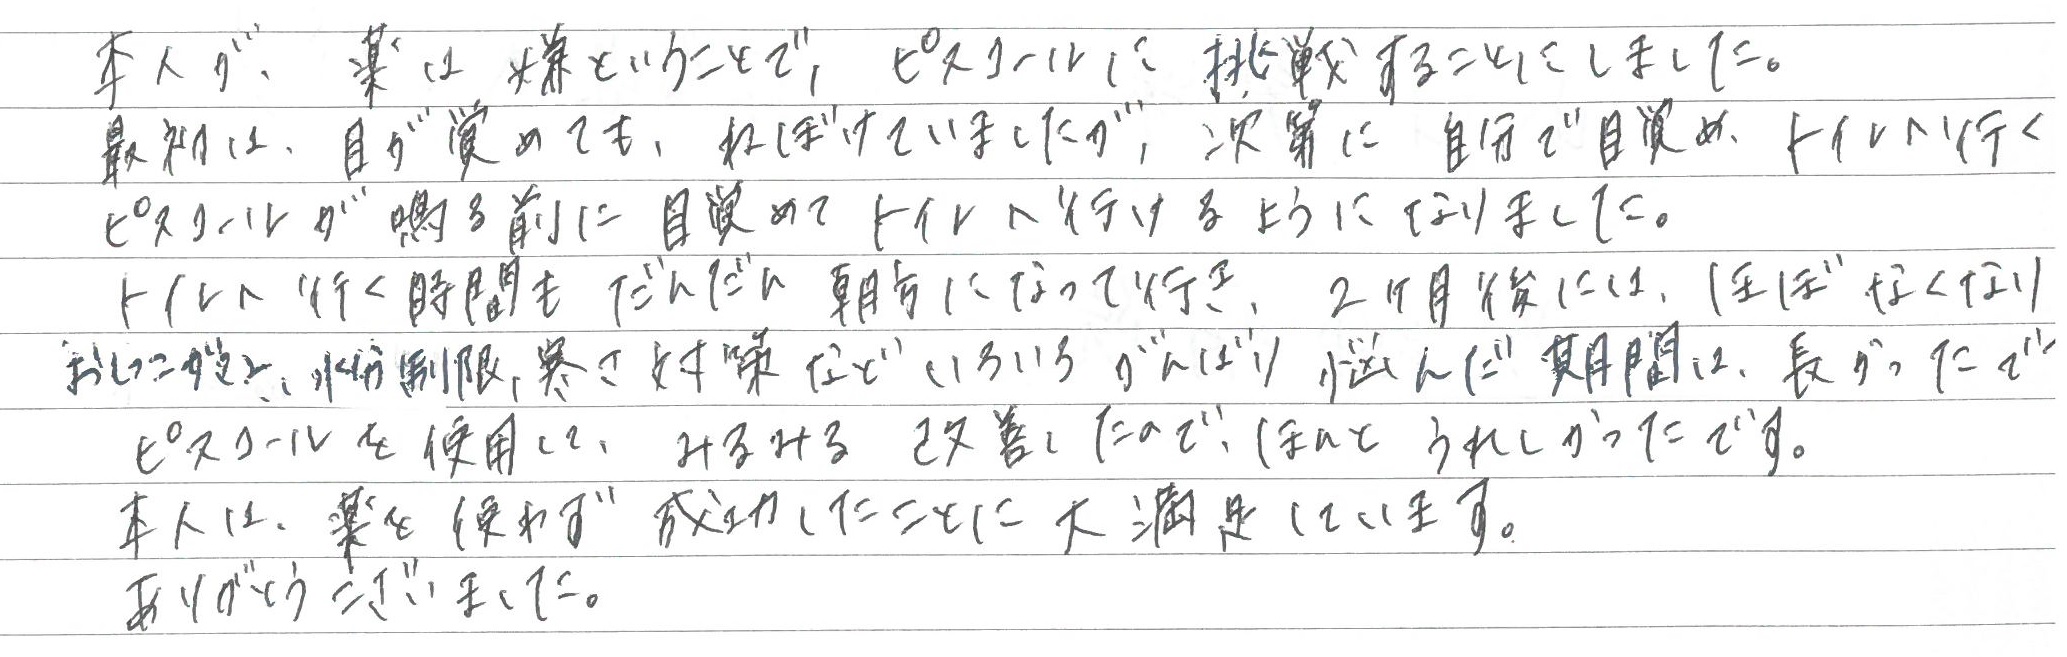 本人が、薬は嫌ということで、ピスコールに挑戦することにしました。
最初は、目が覚めても、ねぼけていましたが、次第に自分で目覚め、トイレへ行く
ピスコールが鳴る前に目覚めてトイレへ行けるようになりました。
トイレへ行く時間もだんだん朝方になって行き、2ヶ月後には、ほぼなくなり
おしっこがまん、水分制限、寒さ対策などいろいろがんばり悩んだ期間は、長かったで
ピスコールを使用して、みるみる改善したので、ほんとうれしかったです。
本人は、薬を使わず成功したことに大満足しています。
ありがとうございました。